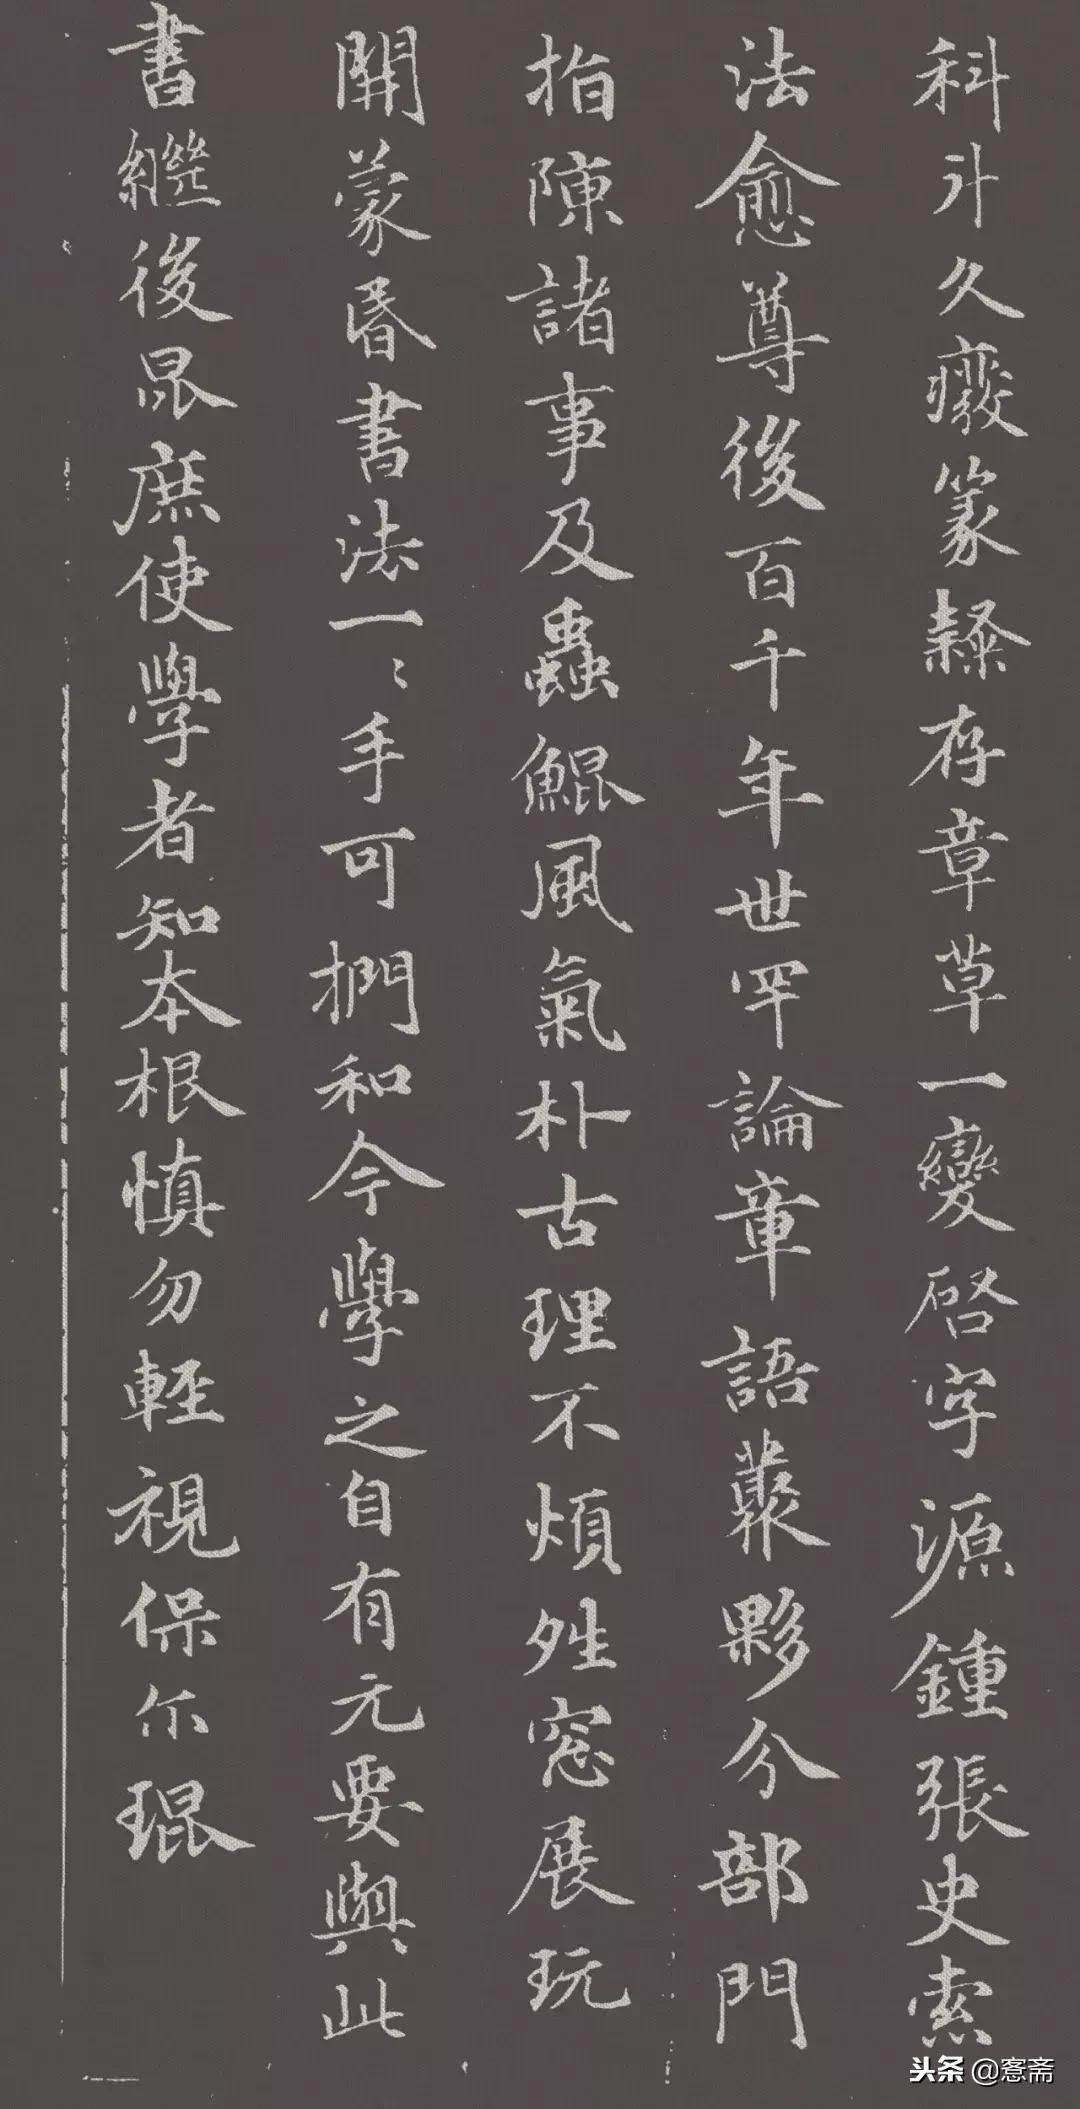 科斗久癈篆隸存章草一變啓字源鍾張史索
法愈尊後百千年世罕論章語叢夥分部門
指陳諸事及蟲鯤風氣朴古理不煩姓窓展玩
開蒙昏書法一〻手可捫和今學之自有元要與此
書繼後昆庶使學者知本根慎勿輕視保尔琨
头条 @愙斋